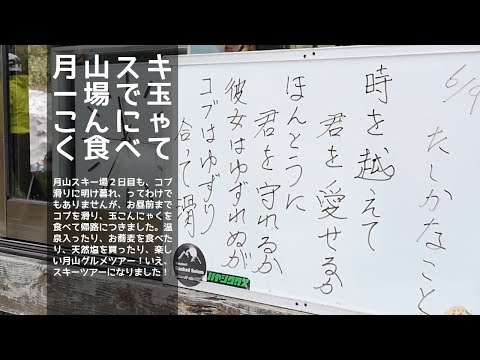 月山スキ
ー場で玉
こんにゃ
く食べて
月山スキー場２日目も、コブ
滑りに明け暮れ、ってわけで
もありませんが、お昼前まで
コブを滑り、玉こんにゃくを
食べて帰路につきました。温
泉入ったり、お蕎麦を食べた
り、天然塩を買ったり、楽し
い月山グルメツアー！いえ、
スキーツアーになりました！
6/9
たしかなこと
時を越えて
君を愛せるか
ほんとうに
君を守れるか
彼女はゆずれぬが
コブはゆずり
合って滑